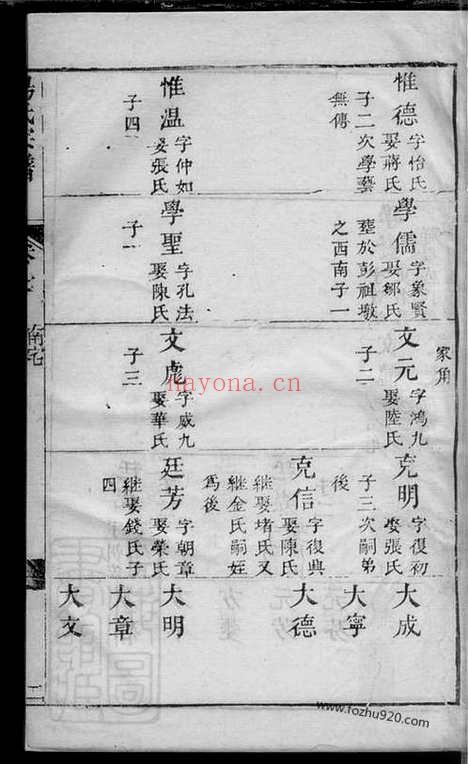 惟德
字怡氏
娶蔣氏
子二次學藝
無傳
學儒
字象賢
娶鄒氏
塟於彭祖墩
之西南子一
家角
文元
字鴻九
娶陸氏
子二
克明
字復初
娶張氏
子三次嗣弟
後
大成
大寧
克信
字復興
娶陳氏
継娶堵氏又
継金氏嗣姪
爲後
大德
惟温
字仲如
娶張氏
子四
學聖
字孔法
娶陳氏
子一
文彪
字威九
娶華氏
子三
廷芳
字朝章
娶榮氏
継娶錢氏子
四
大明
大章
大文
南宅
二
nayona.cn
www.fozhu920.com